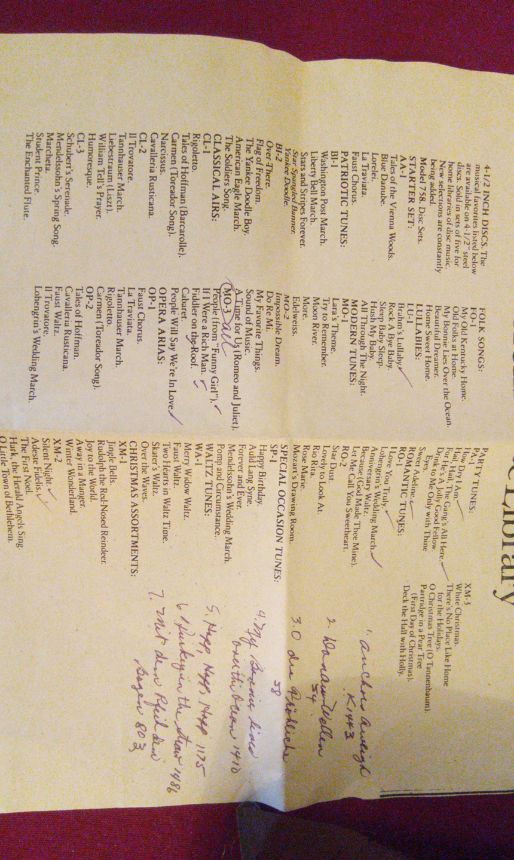 Library
4-1/2 INCH DISCS: The
musical favorites listed below
are available on 4-1/2" sized
discs. Sold in sets of five for
home libraries of disc music.
New selections are constantly
being added.
Model 758. Disc Sets.
STARTER SET:
AA-1
Tales of the Vienna Woods.
Blue Danube.
Lorelei.
La Traviata.
Faust Chorus.
PATRIOTIC TUNES:
BI-1
Washington Post March.
Liberty Bell March.
Stars and Stripes Forever.
Star Spangled Banner.
Yankee Doodle.
BI-2
Over There.
Flag of Freedom.
The Yankee Doodle Boy.
American Eagle March.
The Soldiers Song.
CLASSICAL AIRS:
CL-1
Rigoletto.
Tales of Hoffman (Barcarolle).
Carmen (Toreador Song).
Narcissus.
Cavalleria Rusticana.
CL-2
Il Trovatore.
Tannhauser March.
Liebestraum (Liszt).
William Tell's Prayer.
Humoresque.
CL-3
Schubert's Serenade.
Mendelssohn's Spring Song.
Marcheta.
Student Prince.
The Enchanted Flute.
FOLK SONGS:
FO-1
My Old Kentucky Home.
Old Folks at Home.
My Bonnie Lies Over the Ocean.
Beautiful Dreamer.
Home Sweet Home.
LULLABIES:
LU-1
Brahm's Lullaby.
Rock A Bye Baby.
Sleep Baby Sleep.
Hush My Baby.
All Through The Night.
MODERN TUNES:
MO-1
Lara's Theme.
Try to Remember.
Moon River.
More.
Edelweiss.
MO-2
Impossible Dream.
Do Re Mi.
My Favorite Things.
Sound of Music.
A Time for Us (Romeo and Juliet).
MO-3 all
People (from "Funny Girl").
If I Were a Rich Man.
Fiddler on the Roof.
Cabaret
People Will Say We're In Love.
OPERA ARIAS:
OP-1
Faust Chorus.
La Traviata.
Tannhauser March.
Rigoletto.
Carmen (Toreador Song).
OP-2
Tales of Hoffman.
Cavalleria Rusticana.
Faust Waltz.
Il Trovatore.
Lohengrin's Wedding March.
PARTY TUNES:
PA-1
How Dry I Am.
Hail, Hail, The Gang's All Here.
For He's A Jolly Good Fellow.
Drink to Me Only with Thine
Eyes.
Sweet Adeline.
ROMANTIC TUNES:
RO-1
I Love You Truly.
Lohengrin's Wedding March.
Anniversary Waltz.
Because (God Made Thee Mine).
Let Me Call You Sweetheart.
RO-2
Star Dust
Lovely to Look At.
Rio Rita.
Rose Marie.
Mozart's Drawing Room.
SPECIAL OCCASION TUNES:
SP-1
Happy Birthday.
Auld Lang Syne.
Forever and Ever.
Mendelssohn's Wedding March.
Pomp and Circumstance.
WALTZ TUNES:
WA-1
Merry Widow Waltz.
Faust Waltz.
Two Hearts in Waltz Time.
Skater's Waltz.
Over the Waves.
CHRISTMAS ASSORTMENTS:
XM-1
Jingle Bells.
Rudolph the Red-Nosed Reindeer.
Joy to the World.
Away in a Manger.
Winter Wonderland.
XM-2
Silent Night.
Adeste Fidelis.
The First Noel.
Hark, the Herald Angels Sing
Little Town of Bethlehem.
XM-3
White Christmas.
There's No Place Like Home
for the Holidays.
O Christmas Tree (O Tannenbaum).
Partridge in a Pear Tree
(First Day of Christmas).
Deck the Hall with Holly.
1. Anchors Aweigh
K 1443
2. Donauwellen
54
3. O du Fröhliche
58
4. My Bonnie lies
over the Ocean 1410
5. Hopp, Hopp, Hopp 1175
6. Turkey in the Straw 1486
7. Mit dem Pfeil dem
Bogen 803